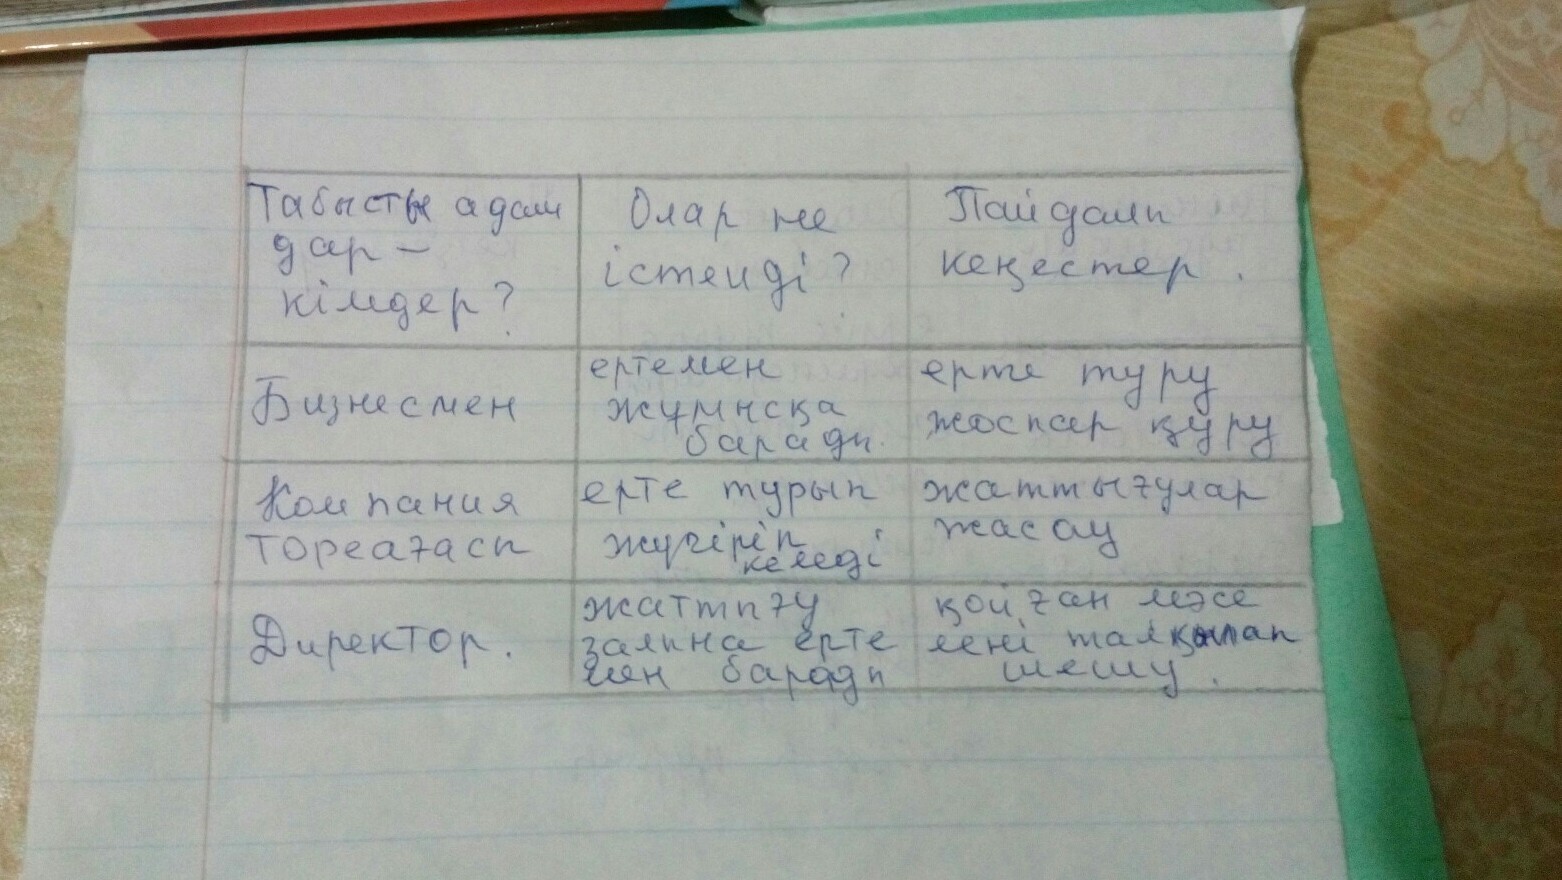 Табысты адам
дар -
кімдер?
Олар не
істейді?
Пайдалы
кеңестер.
Бизнесмен
ертемен
жұмысқа
барады.
ерте тұру
жоспар құру
Компания
төреағасы
ерте тұрып
жүгіріп
келеді
жаттығулар
жасау
Директор.
жаттығу
залына ерте
мен барады
қойған мәсе
лені талқылап
шешу.